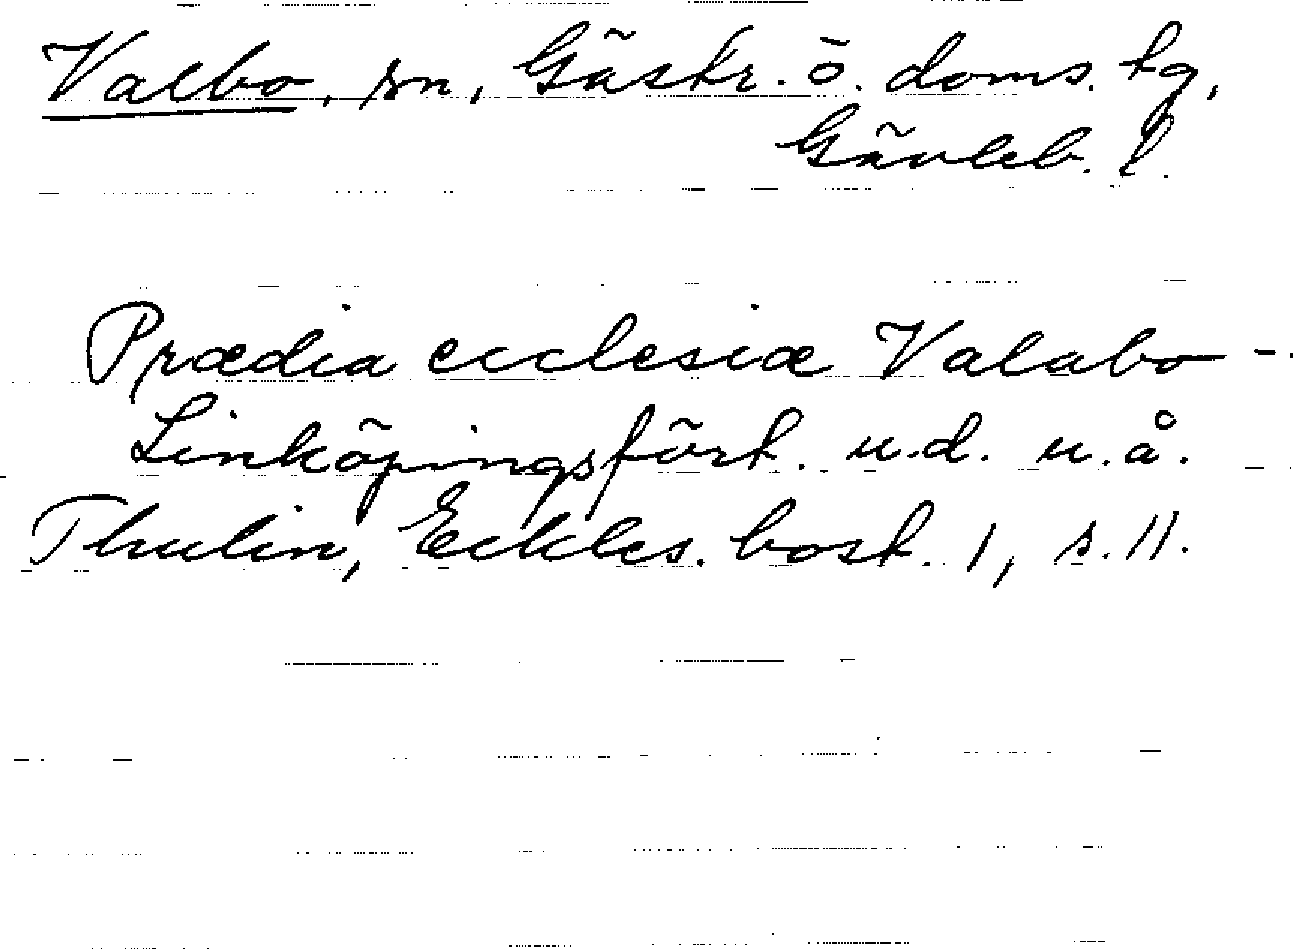 Valbo, sn, Gästr. ö. doms. tg,
Gävleb. l.
Prædia ecclesiæ Valabo -.
Linköpingsfört. u.d. u.å.
Thulin, Eckles. bost. 1, s. 11.